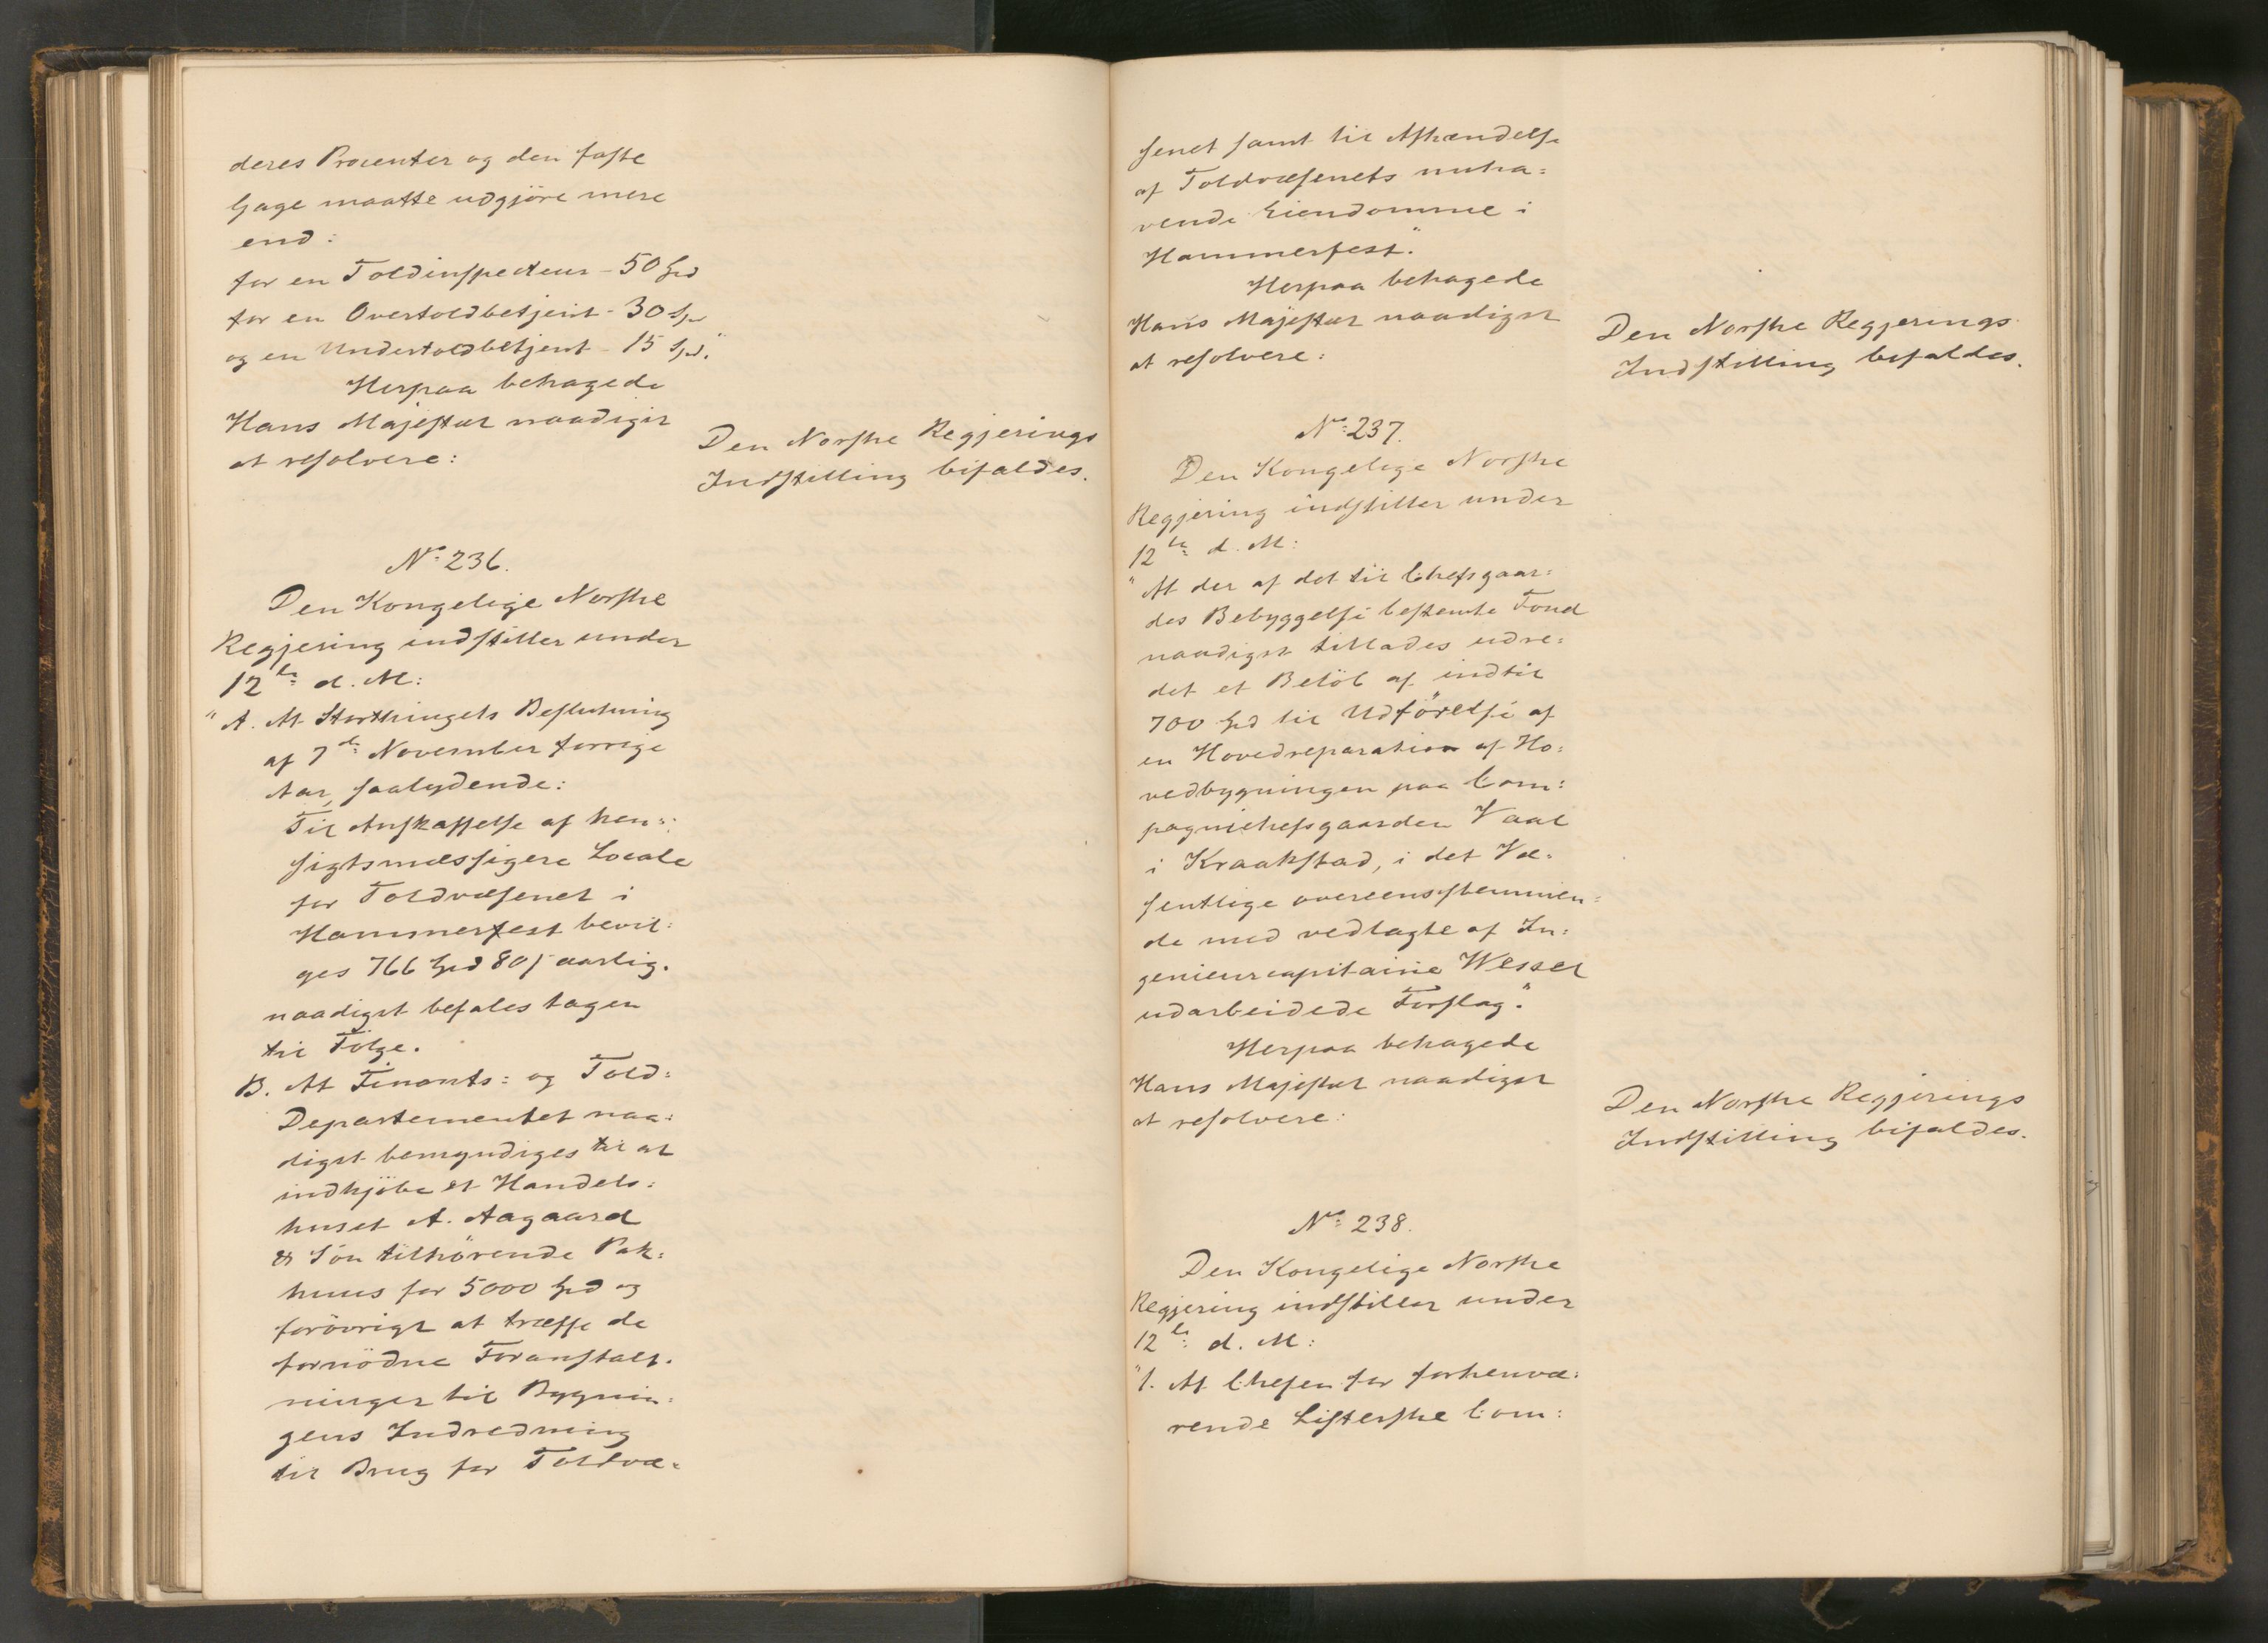 deres Procenter og den faste
Gage maatte udgjöre mere
end:
for en Toldinspecteur - 50 Spd
for en Overtoldbetjent - 30 Spd
og en Undertoldbetjent - 15 Spd."
Herpaa behagede
Hans Majestæt naadigst
at resolvere:
Den Norske Regjerings
Indstilling bifaldes.
No. 236.
Den Kongelige Norske
Regjering indstiller under
12te d. M:
"A. At Storthingets Beslutning
af 7de November forrige
Aar, saalydende:
Til Anskaffelse af hen=
sigtsmæssigere Locale
for Toldvæsenet i
Hammerfest bevil=
ges 766 Spd 80 ß aarlig.
naadigst befales tagen
til Fölge.
B. At Finants= og Told=
Departementet naa=
digst bemyndiges til at
indkjöbe et Handels=
huset A. Aagaard
& Sön tilhörende Pak=
huus for 5000 Spd og
forövrigt at træffe de
fornödne Foranstalt=
ninger til Bygnin=
gens Indredning
til Brug for Toldvæ=
senet samt til Afhændelse
af Toldvæsenets nuha=
vende Eiendomme i
Hammerfest."
Herpaa behagede
Hans Majestæt naadigst
at resolvere:
Den Norske Regjerings
Indstilling bifaldes.
No. 237.
Den Kongelige Norske
Regjering indstiller under
12te d. M:
"At der af det til Chefsgaar=
des Bebyggelse bestemte Fond
naadigst tillades udre=
det et Belöb af indtil
700 Spd til Udförelse af
en Hovedreparation af Ho=
vedbygningen paa Com=
pagniechefsgaarden Vaal
i Kraakstad, i det Væ=
sentlige overeensstemmen=
de med vedlagte af In=
genieurcapitaine Wessel
udarbeidede Forslag."
Herpaa behagede
Hans Majestæt naadigst
at resolvere:
Den Norske Regjerings
Indstilling bifaldes.
No. 238.
Den Kongelige Norske
Regjering indstiller under
12te d. M:
"1. At Chefen for forhenvæ=
rende Listerske Com=